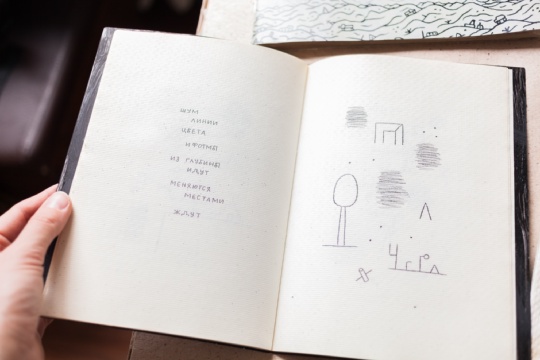 ШУМ
ЛИНИИ
ЦВЕТА
И ФОРМЫ
ИЗ ГЛУБИНЫ
ИДУТ
МЕНЯЮТСЯ
МЕСТАМИ
ЖДУТ